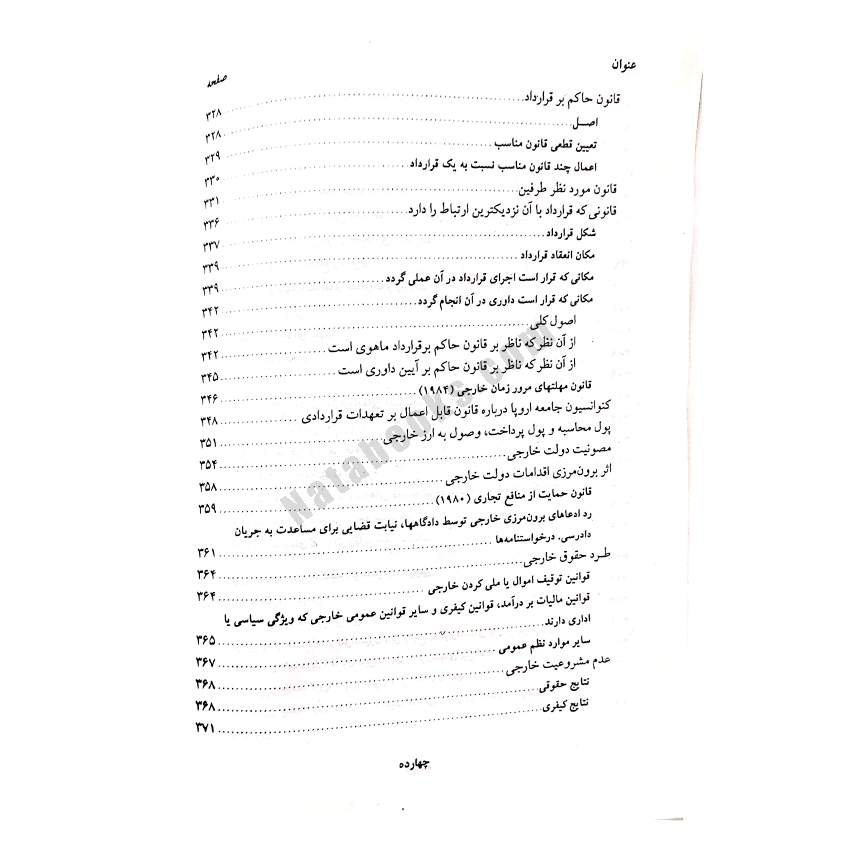 عنوان صفحه
قانون حاکم بر قرارداد ۳۲۸
اصل ۳۲۸
تعیین قطعی قانون مناسب ۳۲۹
اعمال چند قانون مناسب نسبت به یک قرارداد ۳۳۰
قانون مورد نظر طرفین ۳۳۱
قانونی که قرارداد با آن نزدیکترین ارتباط را دارد ۳۳۶
شکل قرارداد ۳۳۷
مکان انعقاد قرارداد ۳۳۹
مکانی که قرار است اجرای قرارداد در آن عملی گردد ۳۳۹
مکانی که قرار است داوری در آن انجام گردد ۳۴۲
اصول کلی ۳۴۲
از آن نظر که ناظر بر قانون حاکم برقرارداد ماهوی است ۳۴۲
از آن نظر که ناظر بر قانون حاکم بر آیین داوری است ۳۴۵
قانون مهلتهای مرور زمان خارجی (۱۹۸۴) ۳۴۶
کنوانسیون جامعه اروپا درباره قانون قابل اعمال بر تعهدات قراردادی ۳۴۸
پول محاسبه و پول پرداخت، وصول به ارز خارجی ۳۵۱
مصونیت دولت خارجی ۳۵۴
اثر برون‌مرزی اقدامات دولت خارجی ۳۵۸
قانون حمایت از منافع تجاری (۱۹۸۰) ۳۵۹
رد ادعاهای برون‌مرزی خارجی توسط دادگاهها، نیابت قضایی برای مساعدت به جریان
دادرسی. درخواستنامه‌ها ۳۶۱
طرد حقوق خارجی ۳۶۴
قوانین توقیف اموال یا ملی کردن خارجی ۳۶۴
قوانین مالیات بر درآمد، قوانین کیفری و سایر قوانین عمومی خارجی که ویژگی سیاسی یا
اداری دارند ۳۶۵
سایر موارد نظم عمومی ۳۶۷
عدم مشروعیت خارجی ۳۶۸
نتایج حقوقی ۳۶۸
نتایج کیفری ۳۷۱
چهارده
Natabooks.com